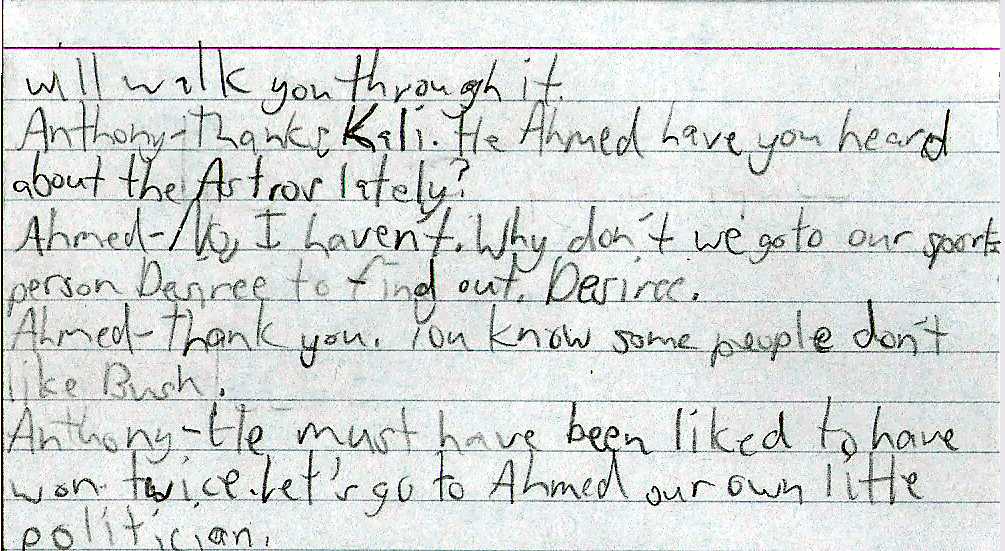 will walk you through it.
Anthony-Thanks Kali. He Ahmed have you heard
about the Astros lately?
Ahmed-No, I haven't. Why don't we go to our sports
person Desiree to find out. Desiree.
Ahmed-Thank you. You know some people don't
like Bush.
Anthony-He must have been liked to have
won twice. Let's go to Ahmed our own little
politician.